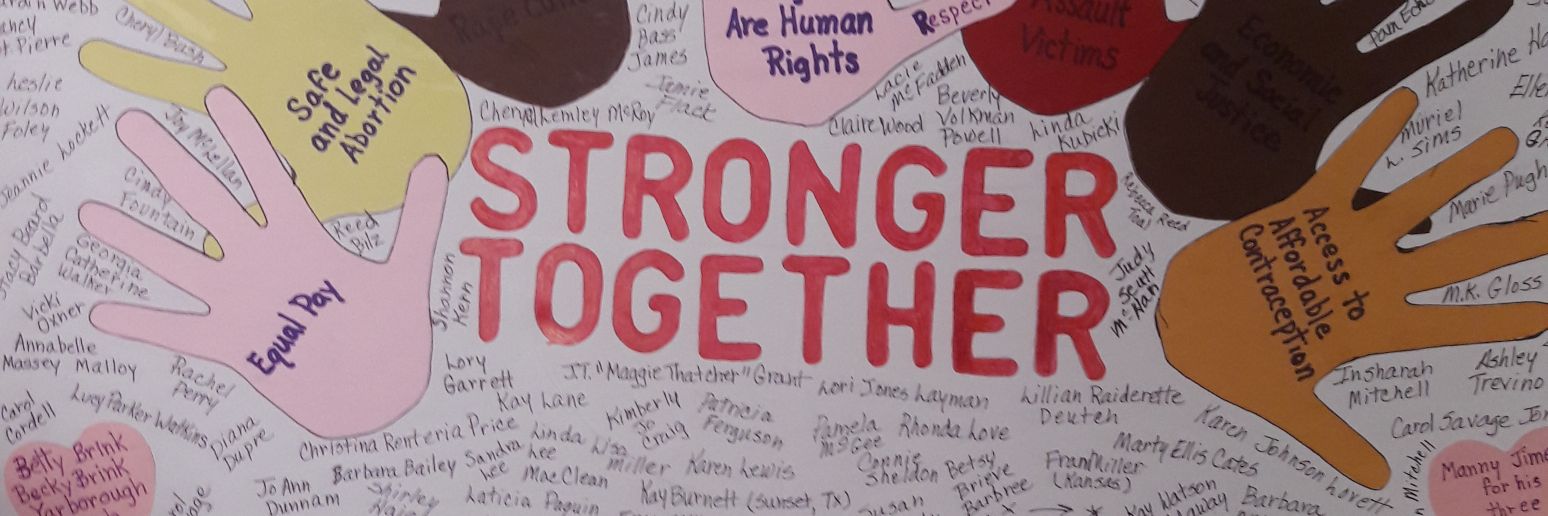 Webb
Cheryl Bash
Pierre
Leslie
Wilson
Foley
Jeannie Lockett
Joy McKellan
Safe
and Legal
Abortion
Cindy
Bass
James
Jamie
Flack
Cheryl Lemley McRoy
Are Human
Rights
Respect
Lacie
McFadden
Claire Wood
Beverly
Volkman
Powell
Linda
Kubicki
Assault
Victims
Economic
and Social
Justice
Katherine
Muriel
L. Sims
Marie Pugh
M.K. Gloss
STRONGER
TOGETHER
Cindy
Fountain
Georgia
Catherine
Walker
Stacy Beard
Vicki
Oxner
Annabelle
Massey Malloy
Reed
Bilz
Shannon
Kern
Equal Pay
Judy
Access to
Affordable
Contraception
Insharah
Mitchell
Ashley
Trevino
Carol Savage
Rachel
Perry
Lucy Parker Watkins
Diana
Dupre
Carol
Cordell
Lory
Garrett
Kay Lane
J.T. "Maggie Thatcher" Grant
Lori Jones Layman
Lillian Raiderette
Deuten
Christina Renteria Price
Linda
Lee
Lisa
Miller
Kimberly
Jo
Craig
Patricia
Ferguson
Pamela
McGee
Rhonda Love
Karen Johnson Lovett
Marty Ellis Cates
Barbara Bailey
Sandra
Lee
MacClean
Karen Lewis
Connie
Sheldon
Betsy
Brieve
Barbree
Fran Miller
(Kansas)
Jo Ann
Dunnam
Shirley
Laticia Paquin
Kay Burnett (Sunset, TX)
Susan
Kay Watson
Barbara
Mitchell
Betty Brink
Becky Brink
Yarborough
Manny
for his
three